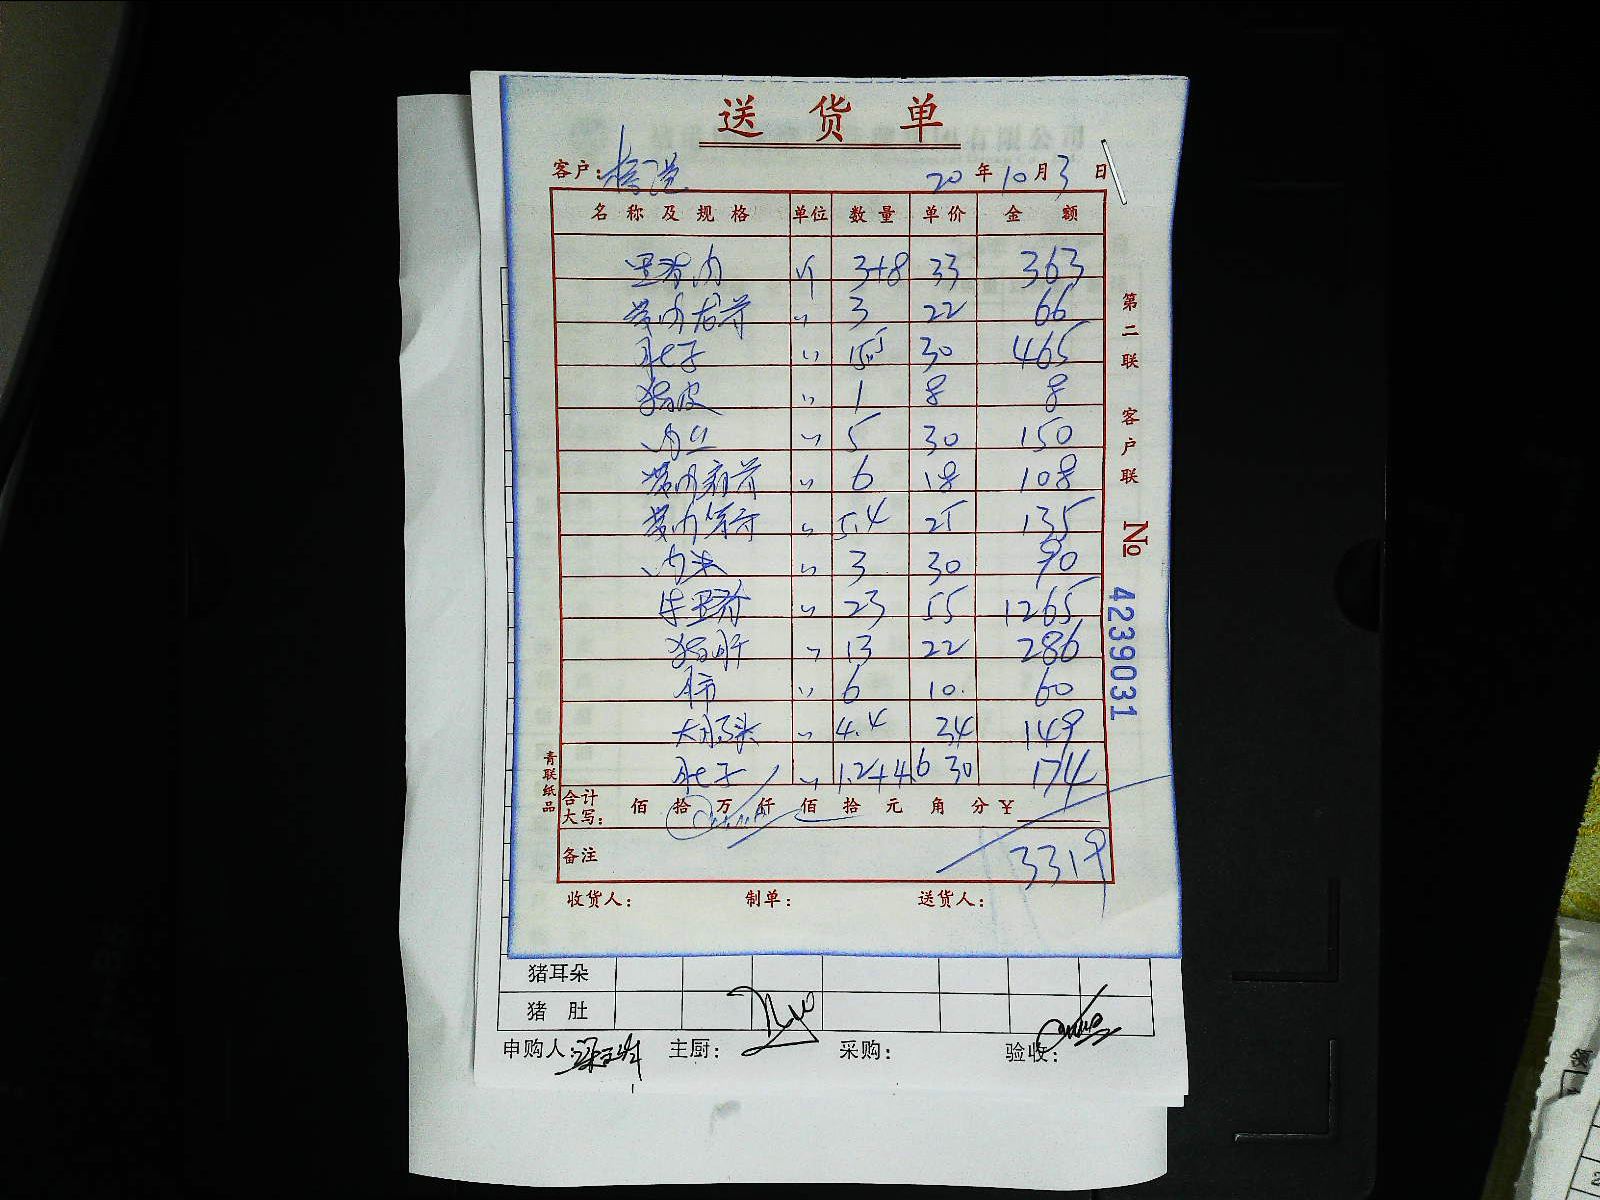 送货单
客户: 20年10月3日
名称及规格 单位 数量 单价 金额
里脊肉 斤 3+8 33 363
带肉龙骨 〃 3 22 66
肚子 〃 15.5 30 465
猪皮 〃 1 8 8
肉丝 〃 5 30 150
带肉前骨 〃 6 18 108
带肉 〃 5.4 25 135
肉末 〃 3 30 90
牛里脊 〃 23 55 1265
猪肝 〃 13 22 286
肺 〃 6 10. 60
大肠头 〃 4.4 34 149
肚子 〃 1.2+4.6 30 174
合计大写: 佰 拾 万 仟 佰 拾 元 角 分 ¥
备注 3319
收货人: 制单: 送货人:
第二联 客户联 № 4239031
青联纸品
猪耳朵
猪肚
申购人: 主厨: 采购: 验收: